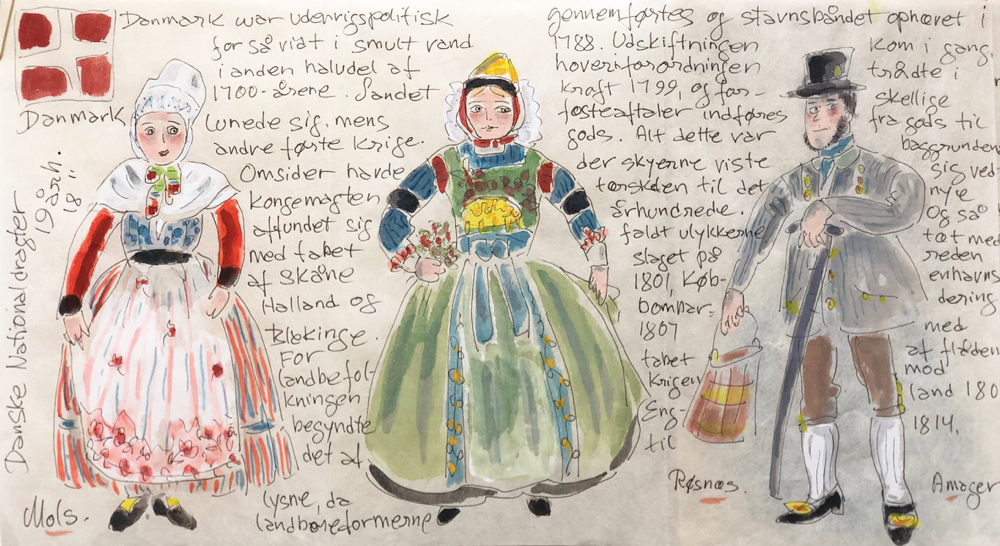 Danmark var udenrigspolitisk
for så vidt i smult vand
i anden halvdel af
1700-årene. Landet
sig, mens
andre førte krige.
Omsider havde
kongemagten
affundet sig
med tabet
af Skåne
Halland og
Blekinge.
For
landbefol-
kningen
begyndte
det at
lysne, da
landboreformerne
gennemførtes og stavnsbåndet ophævet i
1788. Udskiftningen kom i gang,
hoveriforordningen trådte i
kraft 1799, og for- skellige
fæsteaftaler indføres fra gods til
gods. Alt dette var baggrunden
der skyerne viste sig ved-
tærskelen til det nye
århundrede. Og så
faldt ulykkerne tæt med
slaget på reden
1801, Køb- enhavns
bombar- dering
1807 med
tabet af flåden
krigen mod
Eng- land 180
til 1814.
Danmark
Danske Nationaldragter
19 årh.
Mols.
Røsnæs.
Amager